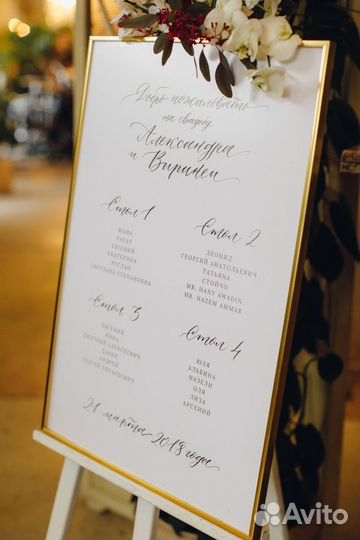 Добро пожаловать
на свадьбу
Александра
и
Стол 1
МАМА
РАХАТ
ЕВГЕНИЙ
ЕКАТЕРИНА
РУСЛАН
СВЕТЛАНА СТЕПАНОВНА
Стол 2
ЛЕОНИД
ГЕОРГИЙ АНАТОЛЬЕВИЧ
ТАТЬЯНА
СТОЙЧО
MR. HANY AWADIN
MR. HAZEM AMMAR
Стол 3
ЕВГЕНИЙ
ИННА
ДМИТРИЙ АЛЕКСЕЕВИЧ
ДАРИЯ
АНДРЕЙ
СЕРГЕЙ
Стол 4
ЮЛЯ
АЛЬБИНА
НАЗЕЛИ
ОЛЯ
ЛИЗА
АРСЕНИЙ
21 марта 2018 года
Avito